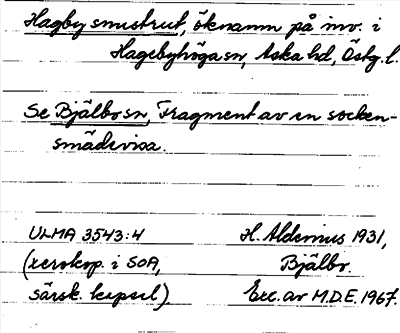 Hagby smustrut, öknamn på inv. i
Hagebyhöga sn, Aska hd, Östg. l.
Se Bjälbo sn, Fragment av en socken-
smädevisa.
ULMA 3543:4
(xerokop. i SOA,
särsk. kapsel)
H. Aldemius 1931,
Bjälbo.
Exc. av M.D.E. 1967.